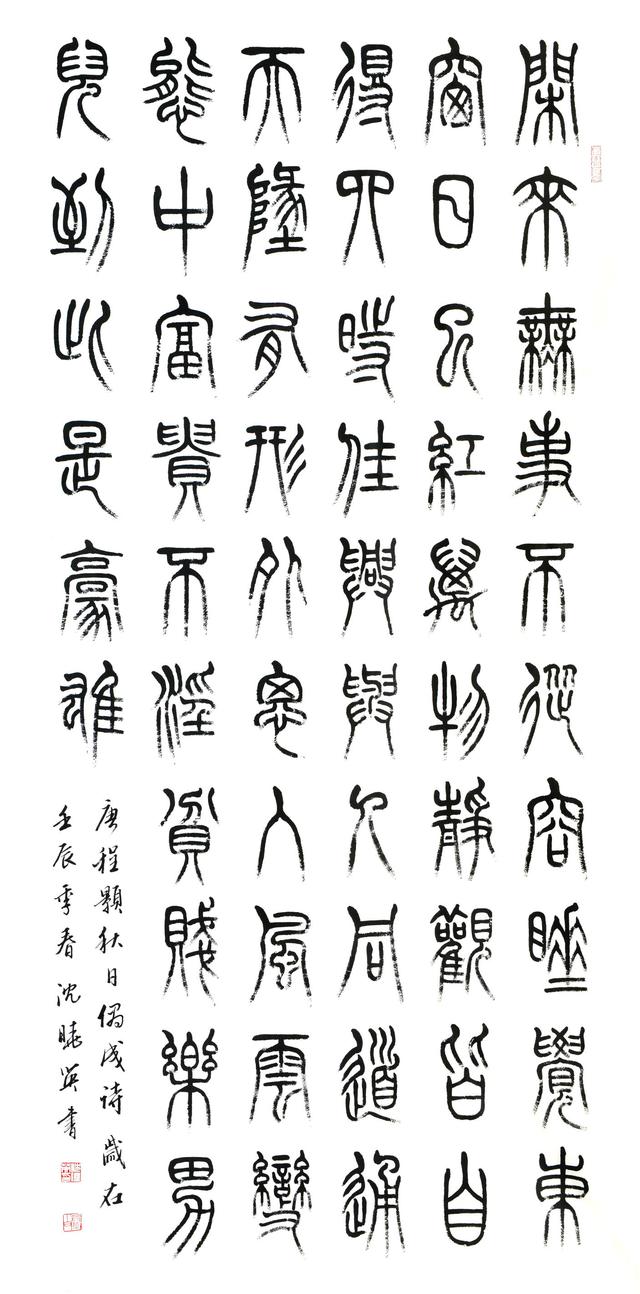 閑來無事不從容睡覺東
窗日已紅萬物靜觀皆自
得四時佳興與人同道通
天墬有形外思入風雲變
態中富貴不淫貧賤樂男
兒到此是豪雄
唐程顥秋日偶成詩歲在
壬辰季春沈英書